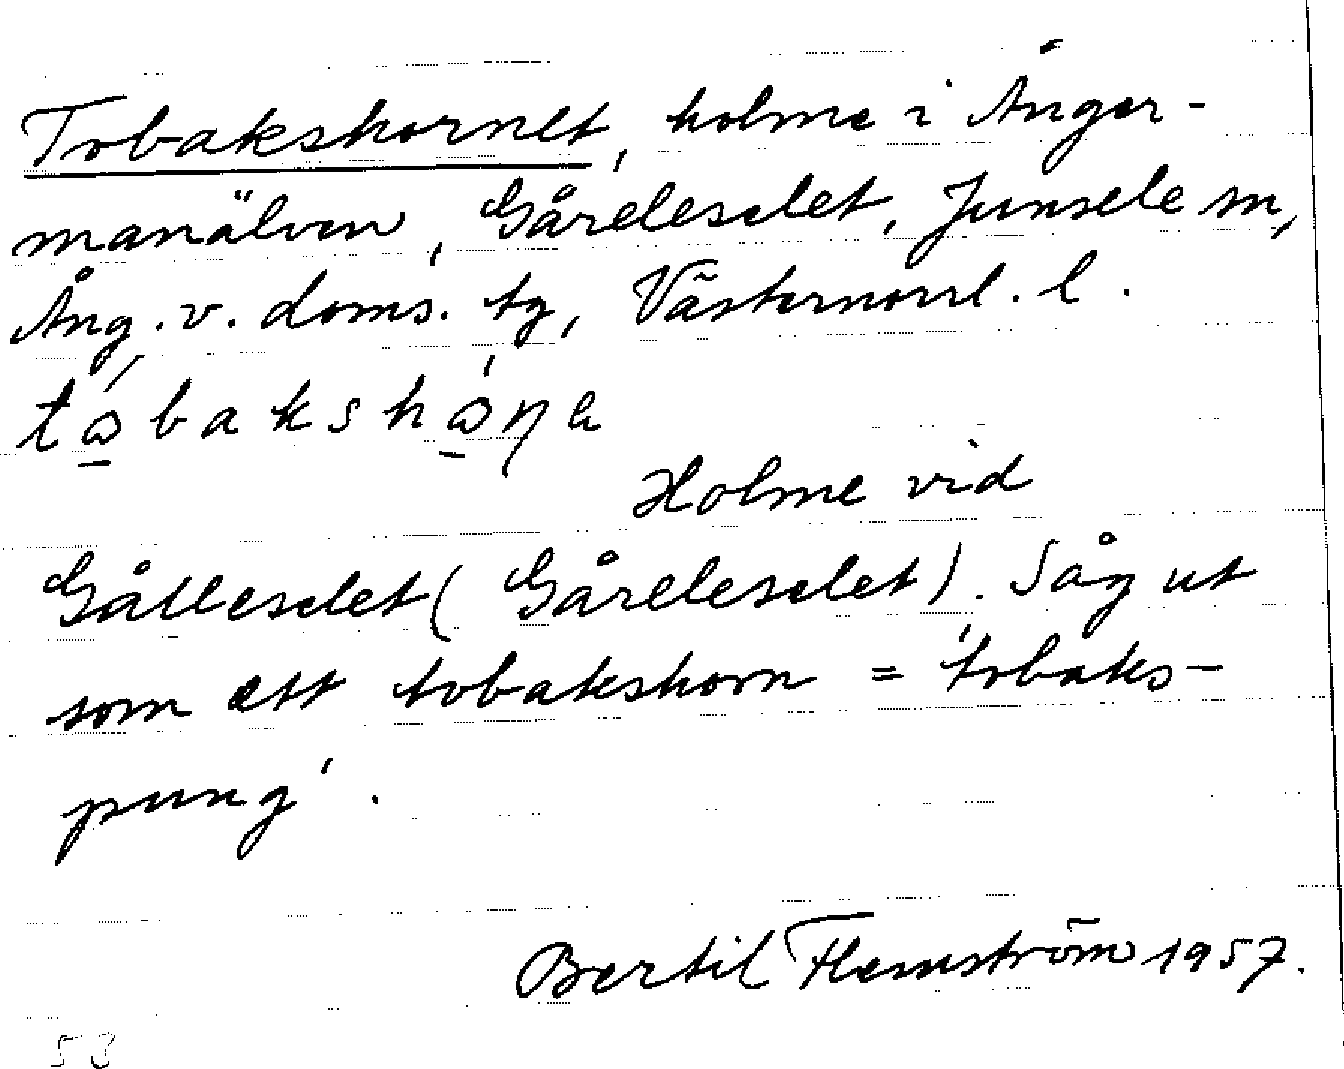 Tobakshornet, holme i Ånger-
manälven, Gåreleselet, Junsele sn,
Ång. v. doms. tg, Västernorrl. l.
Holme vid
Gålleselet (Gåreleselet). Såg ut
som ett tobakshorn = 'tobaks-
pung'.
Bertil Flemström 1957.
53